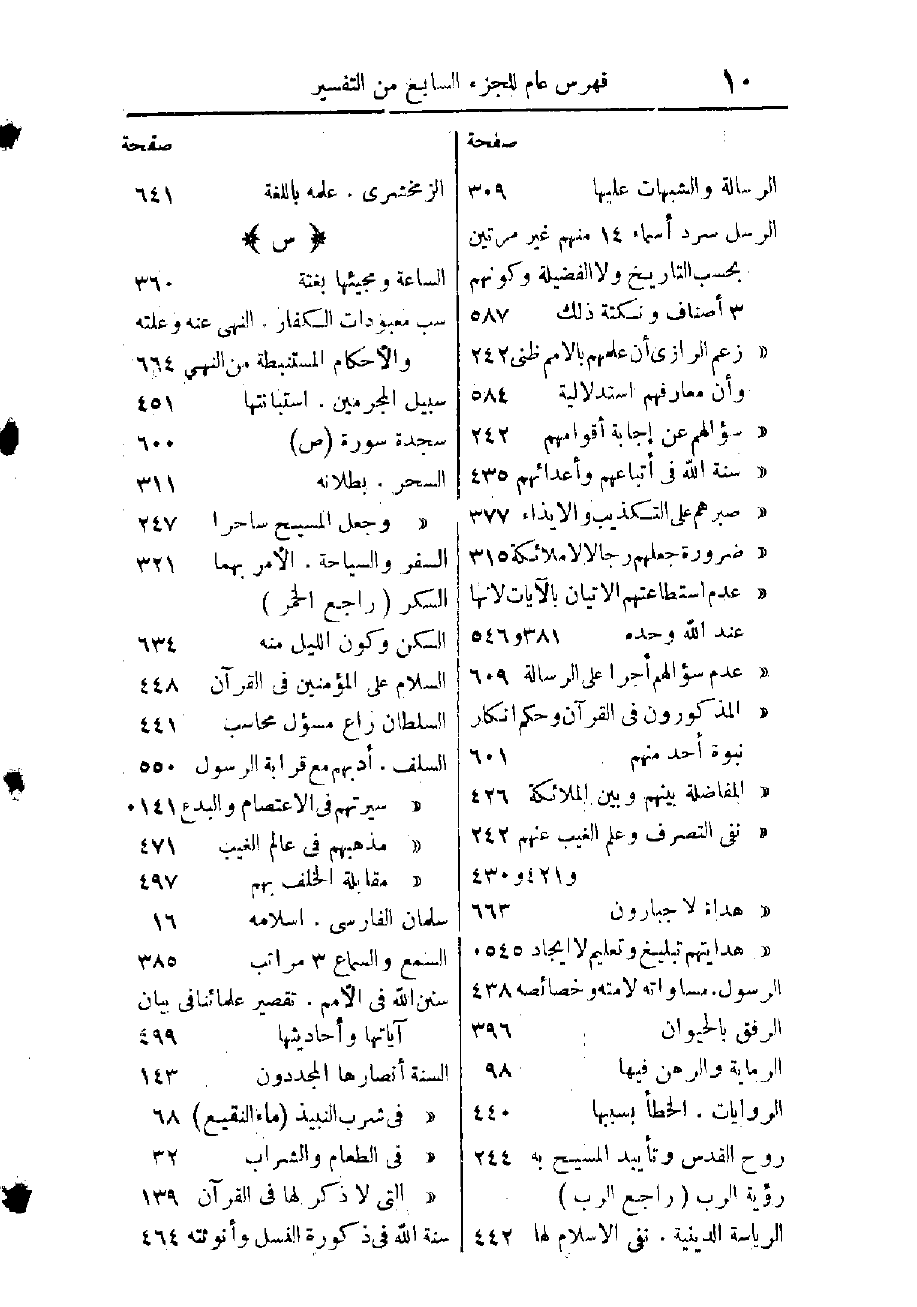 ١٠ فهرس عام للجزء السابع من التفسير
صفحة
الرسالة والشبهات عليها ٣٠٩
الرسل سرد أسماء ١٤ منهم غير مرتين
بحسب التاريخ ولا الفضيلة وكونهم
٣ أصناف ونكتة ذلك ٥٨٧
« زعم الرازى أن علمهم بالامم ظنى ٢٤٢
وأن معارفهم استدلالية ٥٨٤
« سؤالهم عن إجابة أقوامهم ٢٤٢
« سنة الله فى أتباعهم وأعدائهم ٤٣٥
« صبرهم على التكذيب والايذاء ٣٧٧
« ضرورة جعلهم رجالا لا ملائكة ٣١٥
« عدم استطاعتهم الاتيان بالآيات لانها
عند الله وحده ٣٨١ و٥٤٦
« عدم سؤالهم أجرا على الرسالة ٦٠٩
« المذكورون فى القرآن وحكم انكار
نبوة أحد منهم ٦٠١
« المفاضلة بينهم وبين الملائكة ٤٢٦
« نفى التصرف وعلم الغيب عنهم ٢٤٢
و٤٢١ و٤٣٠
« هداة لا جبارون ٦٦٣
« هدايتهم تبليغ وتعليم لا ايجاد ٥٤٥٠
الرسول. مساواته لامته وخصائصه ٤٣٨
الرفق بالحيوان ٣٩٦
الرماية والرهن فيها ٩٨
الروايات . الخطأ بسببها ٤٤٠
روح القدس وتأييد المسيح به ٢٤٤
رؤية الرب ( راجع الرب )
الرياسة الدينية . نفى الاسلام لها ٤٤٢
صفحة
الزمخشرى . علمه باللغة ٦٤١
﴿ س ﴾
الساعة ومجيئها بغتة ٣٦٠
سب معبودات الكفار . النهى عنه وعلته
والأحكام المستنبطة من النهي ٦٦٤
سبيل المجرمين . استبانتها ٤٥١
سجدة سورة (ص) ٦٠٠
السحر . بطلانه ٣١١
« وجعل المسيح ساحرا ٢٤٧
السفر والسياحة . الأمر بهما ٣٢١
السكر ( راجع الخمر )
السكن وكون الليل منه ٦٣٤
السلام على المؤمنين فى القرآن ٤٤٨
السلطان راع مسؤل محاسب ٤٤١
السلف . أدبهم مع قرابة الرسول ٥٥٠
« سيرتهم فى الاعتصام والبدع ١٤١٠
« مذهبهم فى عالم الغيب ٤٧١
« مقابلة الخلف بهم ٤٩٧
سلمان الفارسى . اسلامه ١٦
السمع والسماع ٣ مراتب ٣٨٥
سنن الله فى الأمم . تقصير علمائنا فى بيان
آياتها وأحاديثها ٤٩٩
السنة أنصارها المجددون ١٤٣
« فى شرب النبيذ (ماء النقيع) ٦٨
« فى الطعام والشراب ٣٢
« التى لا ذكر لها فى القرآن ١٣٩
سنة الله فى ذكورة النسل وأنوثته ٤٦٤